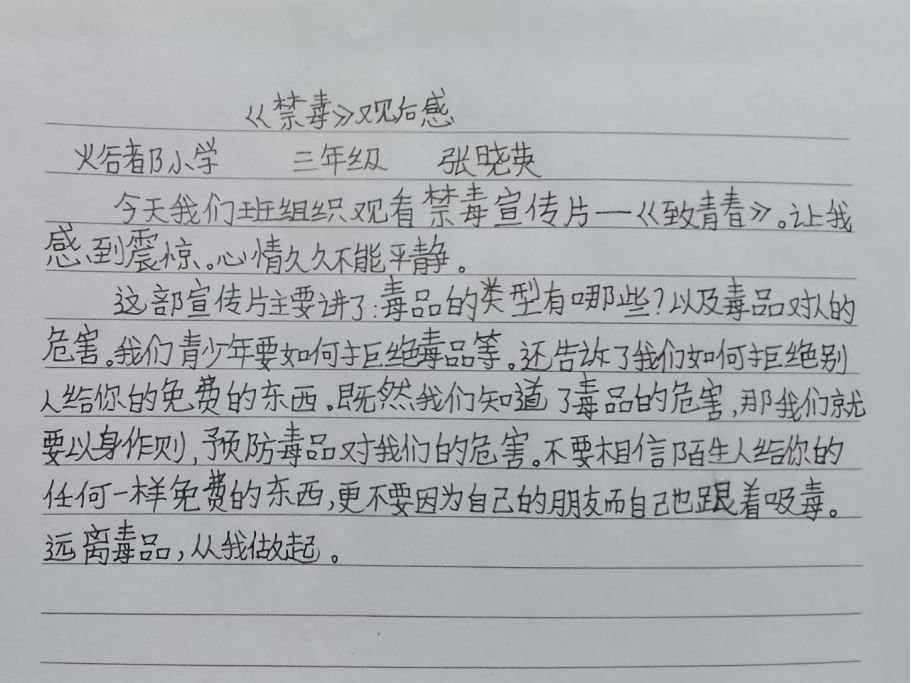 《禁毒》观后感
峪都小学 三年级 张晓英
今天我们班组织观看禁毒宣传片—《致青春》。让我
感到震惊。心情久久不能平静。
这部宣传片主要讲了:毒品的类型有哪些?以及毒品对人的
危害。我们青少年要如何拒绝毒品等。还告诉了我们如何拒绝别
人给你的免费的东西。既然我们知道了毒品的危害,那我们就
要以身作则,预防毒品对我们的危害。不要相信陌生人给你的
任何一样免费的东西,更不要因为自己的朋友而自己也跟着吸毒。
远离毒品,从我做起。